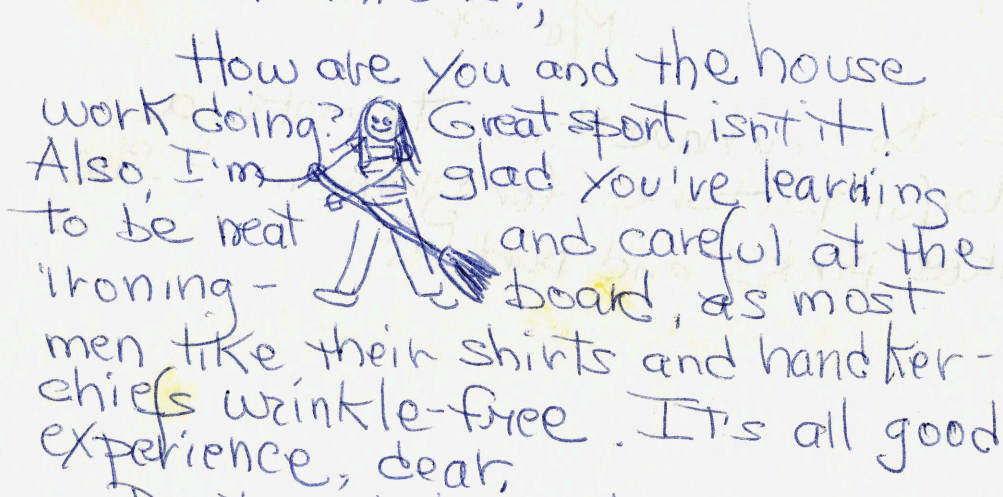 How are you and the house
work doing? Great sport, isn't it!
Also, I'm glad you're learning
to be neat and careful at the
ironing- board, as most
men like their shirts and handker-
chiefs wrinkle-free. It's all good
experience, dear,